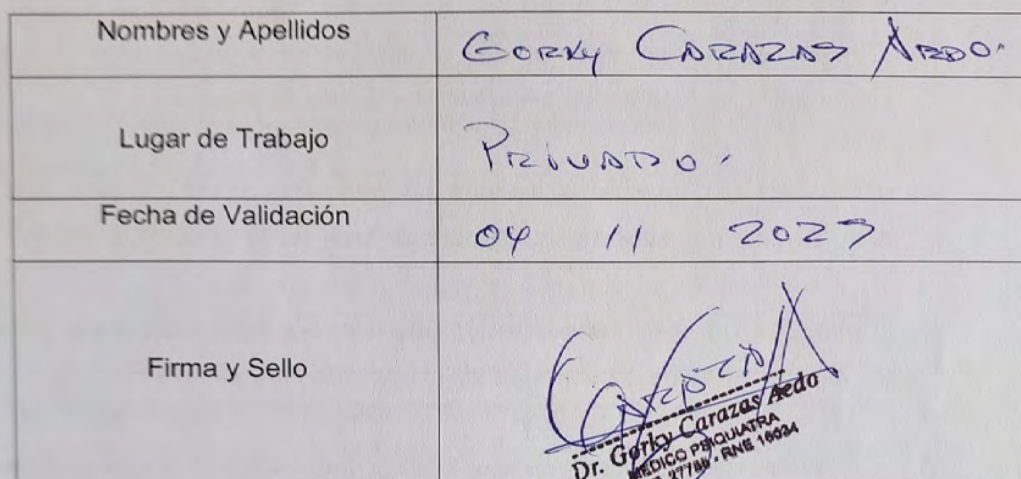 Nombres y Apellidos Gorky Carazas Aedo.
Lugar de Trabajo Privado.
Fecha de Validación 04 11 2023
Firma y Sello
Dr. Gorky Carazas Aedo
MEDICO PSIQUIATRA
RNE 16034